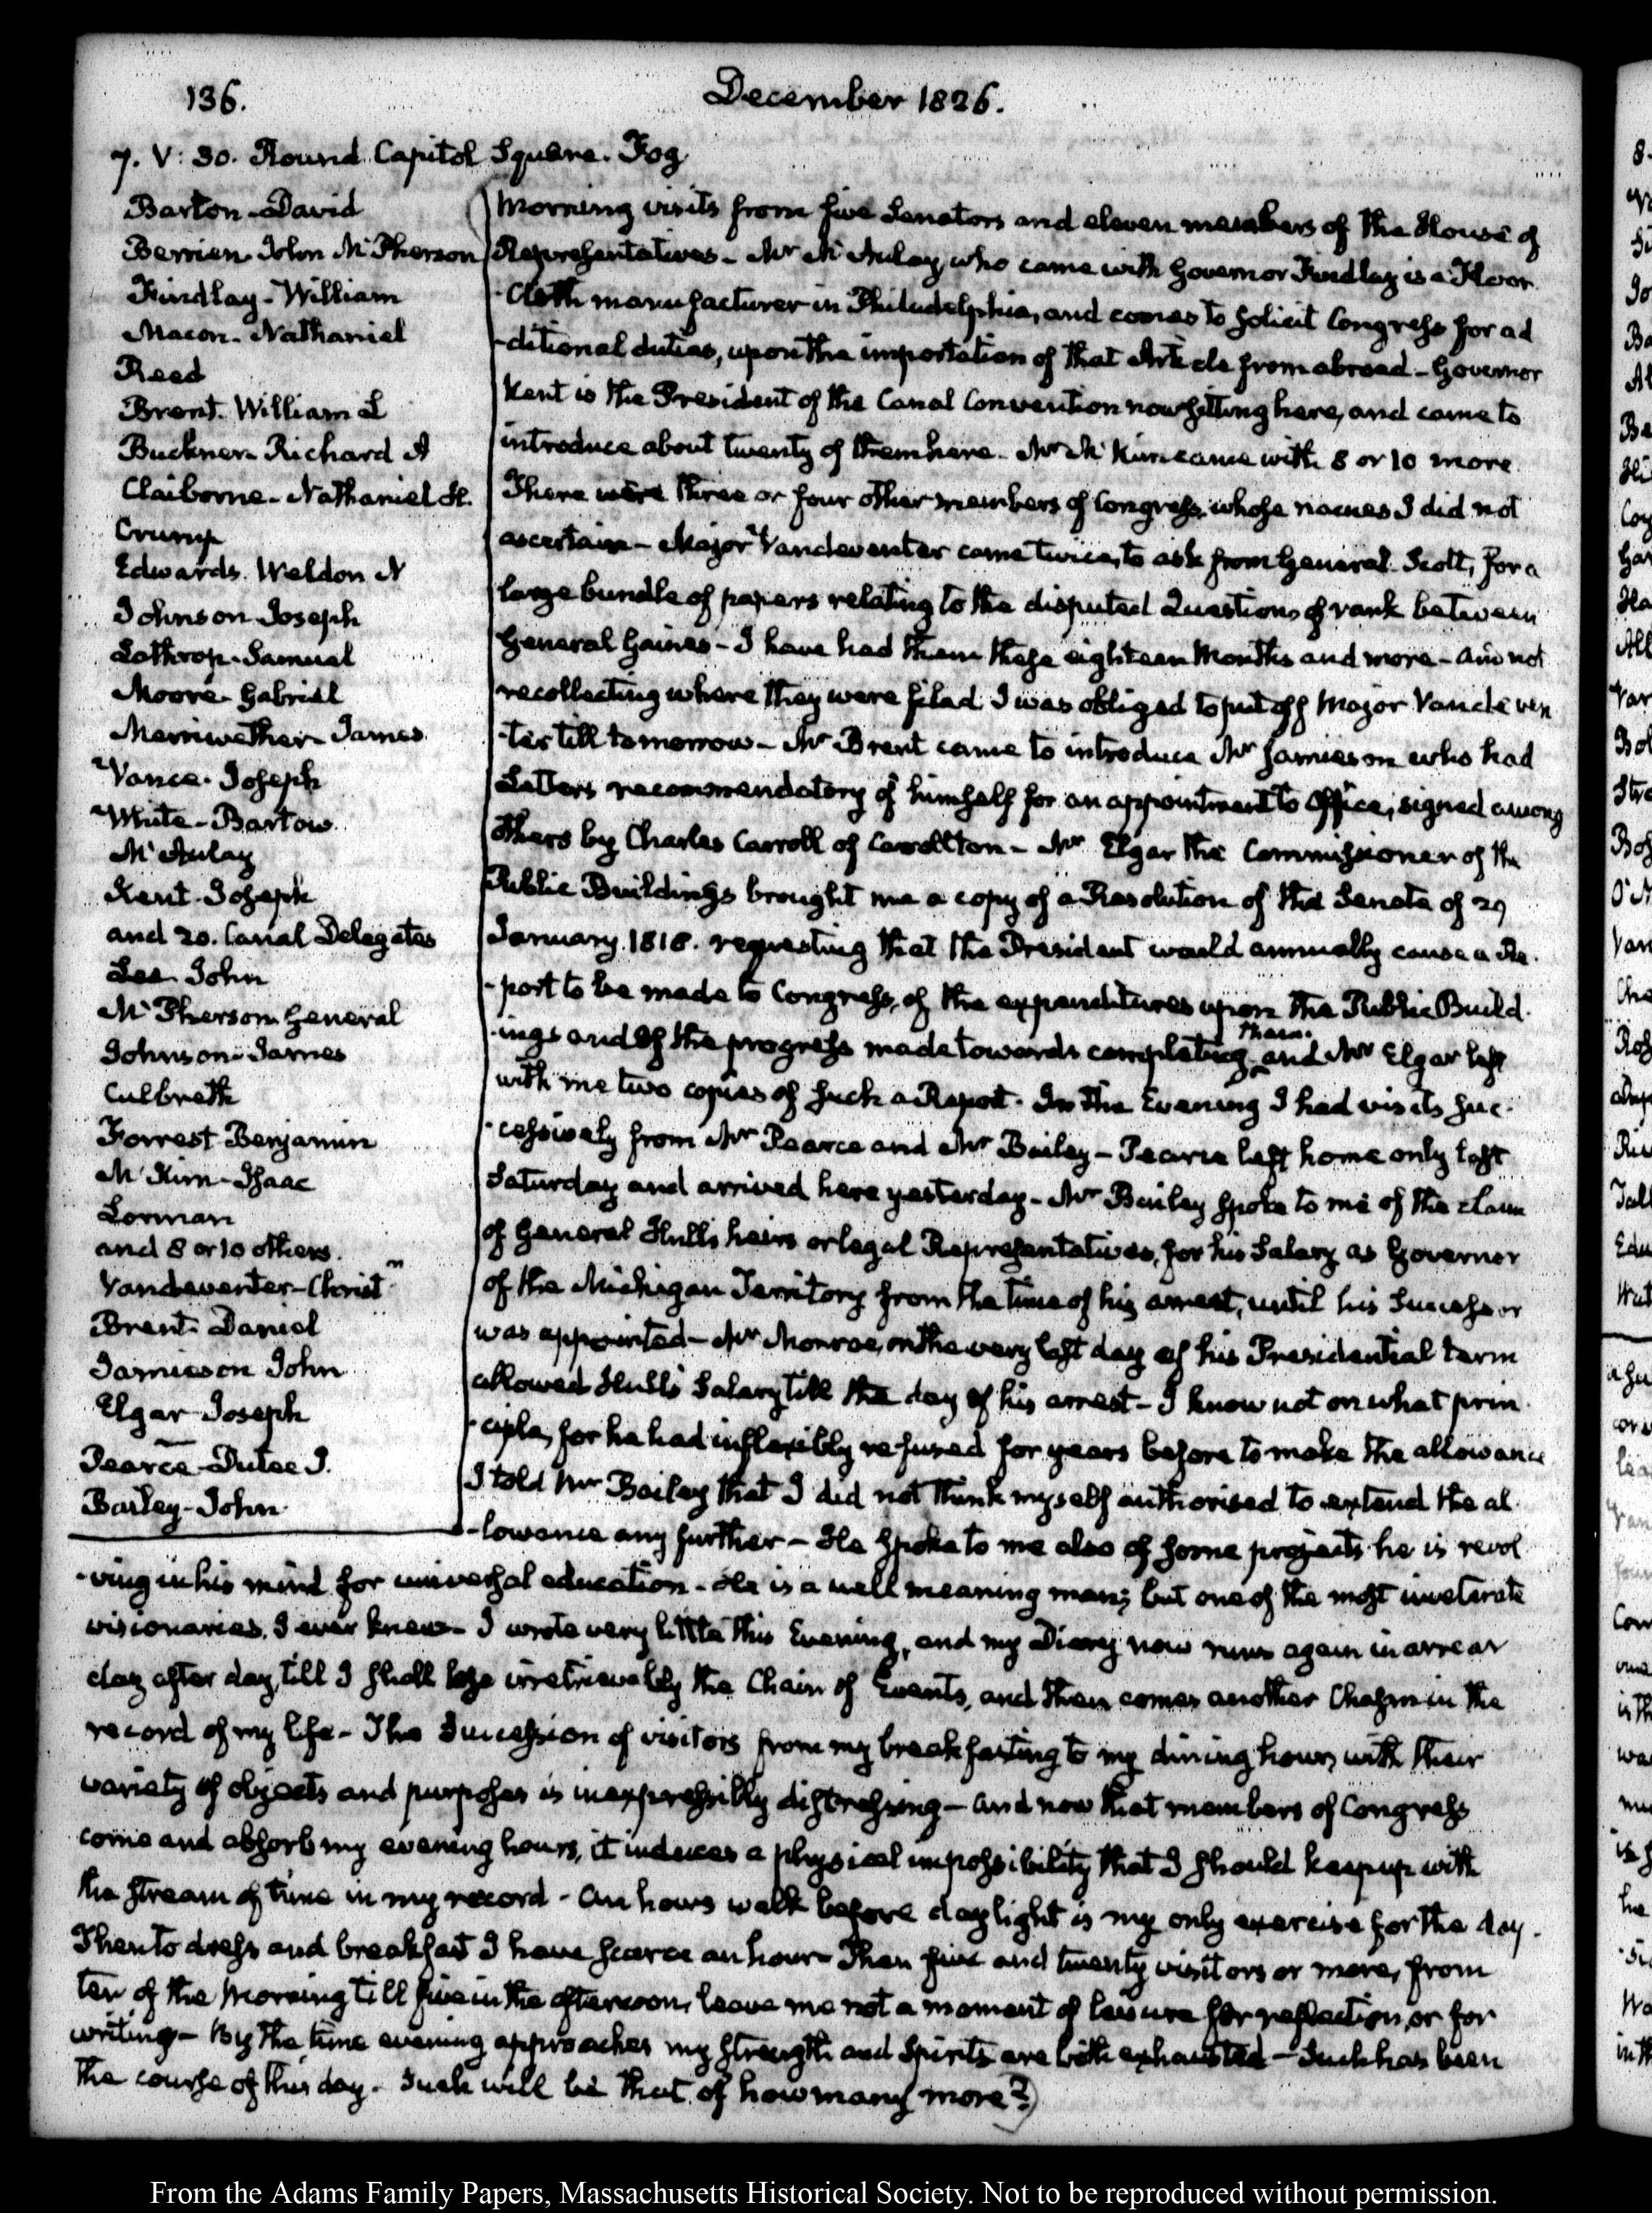 136.
December 1826.
7. V: 30. Round Capitol Square. Fog
Barton - David
Berrien - John McPherson
Findlay - William
Macon - Nathaniel
Reed
Brent - William L
Buckner - Richard A
Claiborne - Nathaniel H.
Crump
Edwards. Weldon N
Johnson - Joseph
Lothrop - Samuel
Moore - Gabriel
Merriwether - James
Vance - Joseph
White - Bartow
McAulay
Kent - Joseph
and 20. Canal Delegates
Lee John
McPherson General
Johnson - James
Culbreth
Forrest Benjamin
McKim - Isaac
Lorman
and 8 or 10 others.
Vandeventer - Christr
Brent - Daniel
Jamieson John
Elgar - Joseph
Pearce - Dutee J.
Bailey - John
Morning visits from five Senators and eleven members of the House of
Representatives - Mr McAulay, who came with Governor Findlay is a Floor-
-Cloth manufacturer in Philadelphia, and comes to solicit Congress for ad
-ditional duties, upon the importation of that Article from abroad - Governor
Kent is the President of the Canal Convention now sitting here, and came to
introduce about twenty of them here. Mr McKim came with 8 or 10 more
There were three or four other members of Congress, whose names I did not
ascertain - Major Vandeventer came twice, to ask from General Scott, for a
large bundle of papers relating to the disputed Questions of rank between
General Gaines - I have had them these eighteen Months and more - and not
recollecting where they were filed I was obliged to put off Major Vandeven
-ter till tomorrow - Mr Brent came to introduce Mr Jamieson who had
Letters recommendatory of himself for an appointment to Office, signed among
others by Charles Carroll of Carrollton - Mr Elgar the Commissioner of the
Public Buildings brought me a copy of a Resolution of the Senate of 29
January 1818. requesting that the President would annually cause a Re-
-port to be made to Congress, of the expenditures upon the Public Build-
-ings and of the progress made towards completing them. and Mr Elgar left
with me two copies of such a Report. In the Evening I had visits suc-
-cessively from Mr Pearce and Mr Bailey - Pearce left home only last
Saturday and arrived here yesterday - Mr Bailey spoke to me of the claim
of General Hull's heirs or legal Representatives, for his Salary as Governor
of the Michigan Territory from the time of his arrest, until his Successor
was appointed - Mr Monroe, on the very last day of his Presidential term
allowed Hull's Salary till the day of his arrest - I know not on what prin-
-ciple, for he had inflexibly refused for years before to make the allowance
I told Mr Bailey that I did not think myself authorised to extend the al-
-lowance any further - He spoke to me also of some projects he is revol
-ving in his mind for universal education - He is a well meaning man; but one of the most inveterate
visionaries, I ever knew - I wrote very little this Evening, and my Diary now runs again in arrear
day after day, till I shall lose irretrievably the Chain of Events, and then comes another Chasm in the
record of my life - The Succession of visitors from my breakfasting to my dining hour, with their
variety of objects and purposes is inexpressibly distressing - and now that members of Congress
come and absorb my evening hours, it induces a physical impossibility that I should keep up with
the stream of time in my record - An hours walk before daylight is my only exercise for the day.
Then to dress and breakfast I have scarce an hour - Then five and twenty visitors or more, from
ten of the Morning till five in the afternoon, leave me not a moment of leisure for reflection, or for
writing - By the time evening approaches my strength and Spirits are both exhausted - Such has been
the course of this day - Such will be that of how many more?)
From the Adams Family Papers, Massachusetts Historical Society. Not to be reproduced without permission.